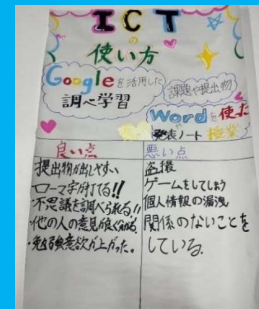 ICT
の
使い方
Googleを活用した
調べ学習
課題や提出物
Wordを使った
発表ノート 授業
良い点
提出物が出しやすい
ローマ字が打てる!!
不思議を調べられる!!
・他の人の意見が良く分かる
・勉強意欲が上がった。
悪い点
ゲームをしてしまう
個人情報の漏洩
関係のないことを
している。